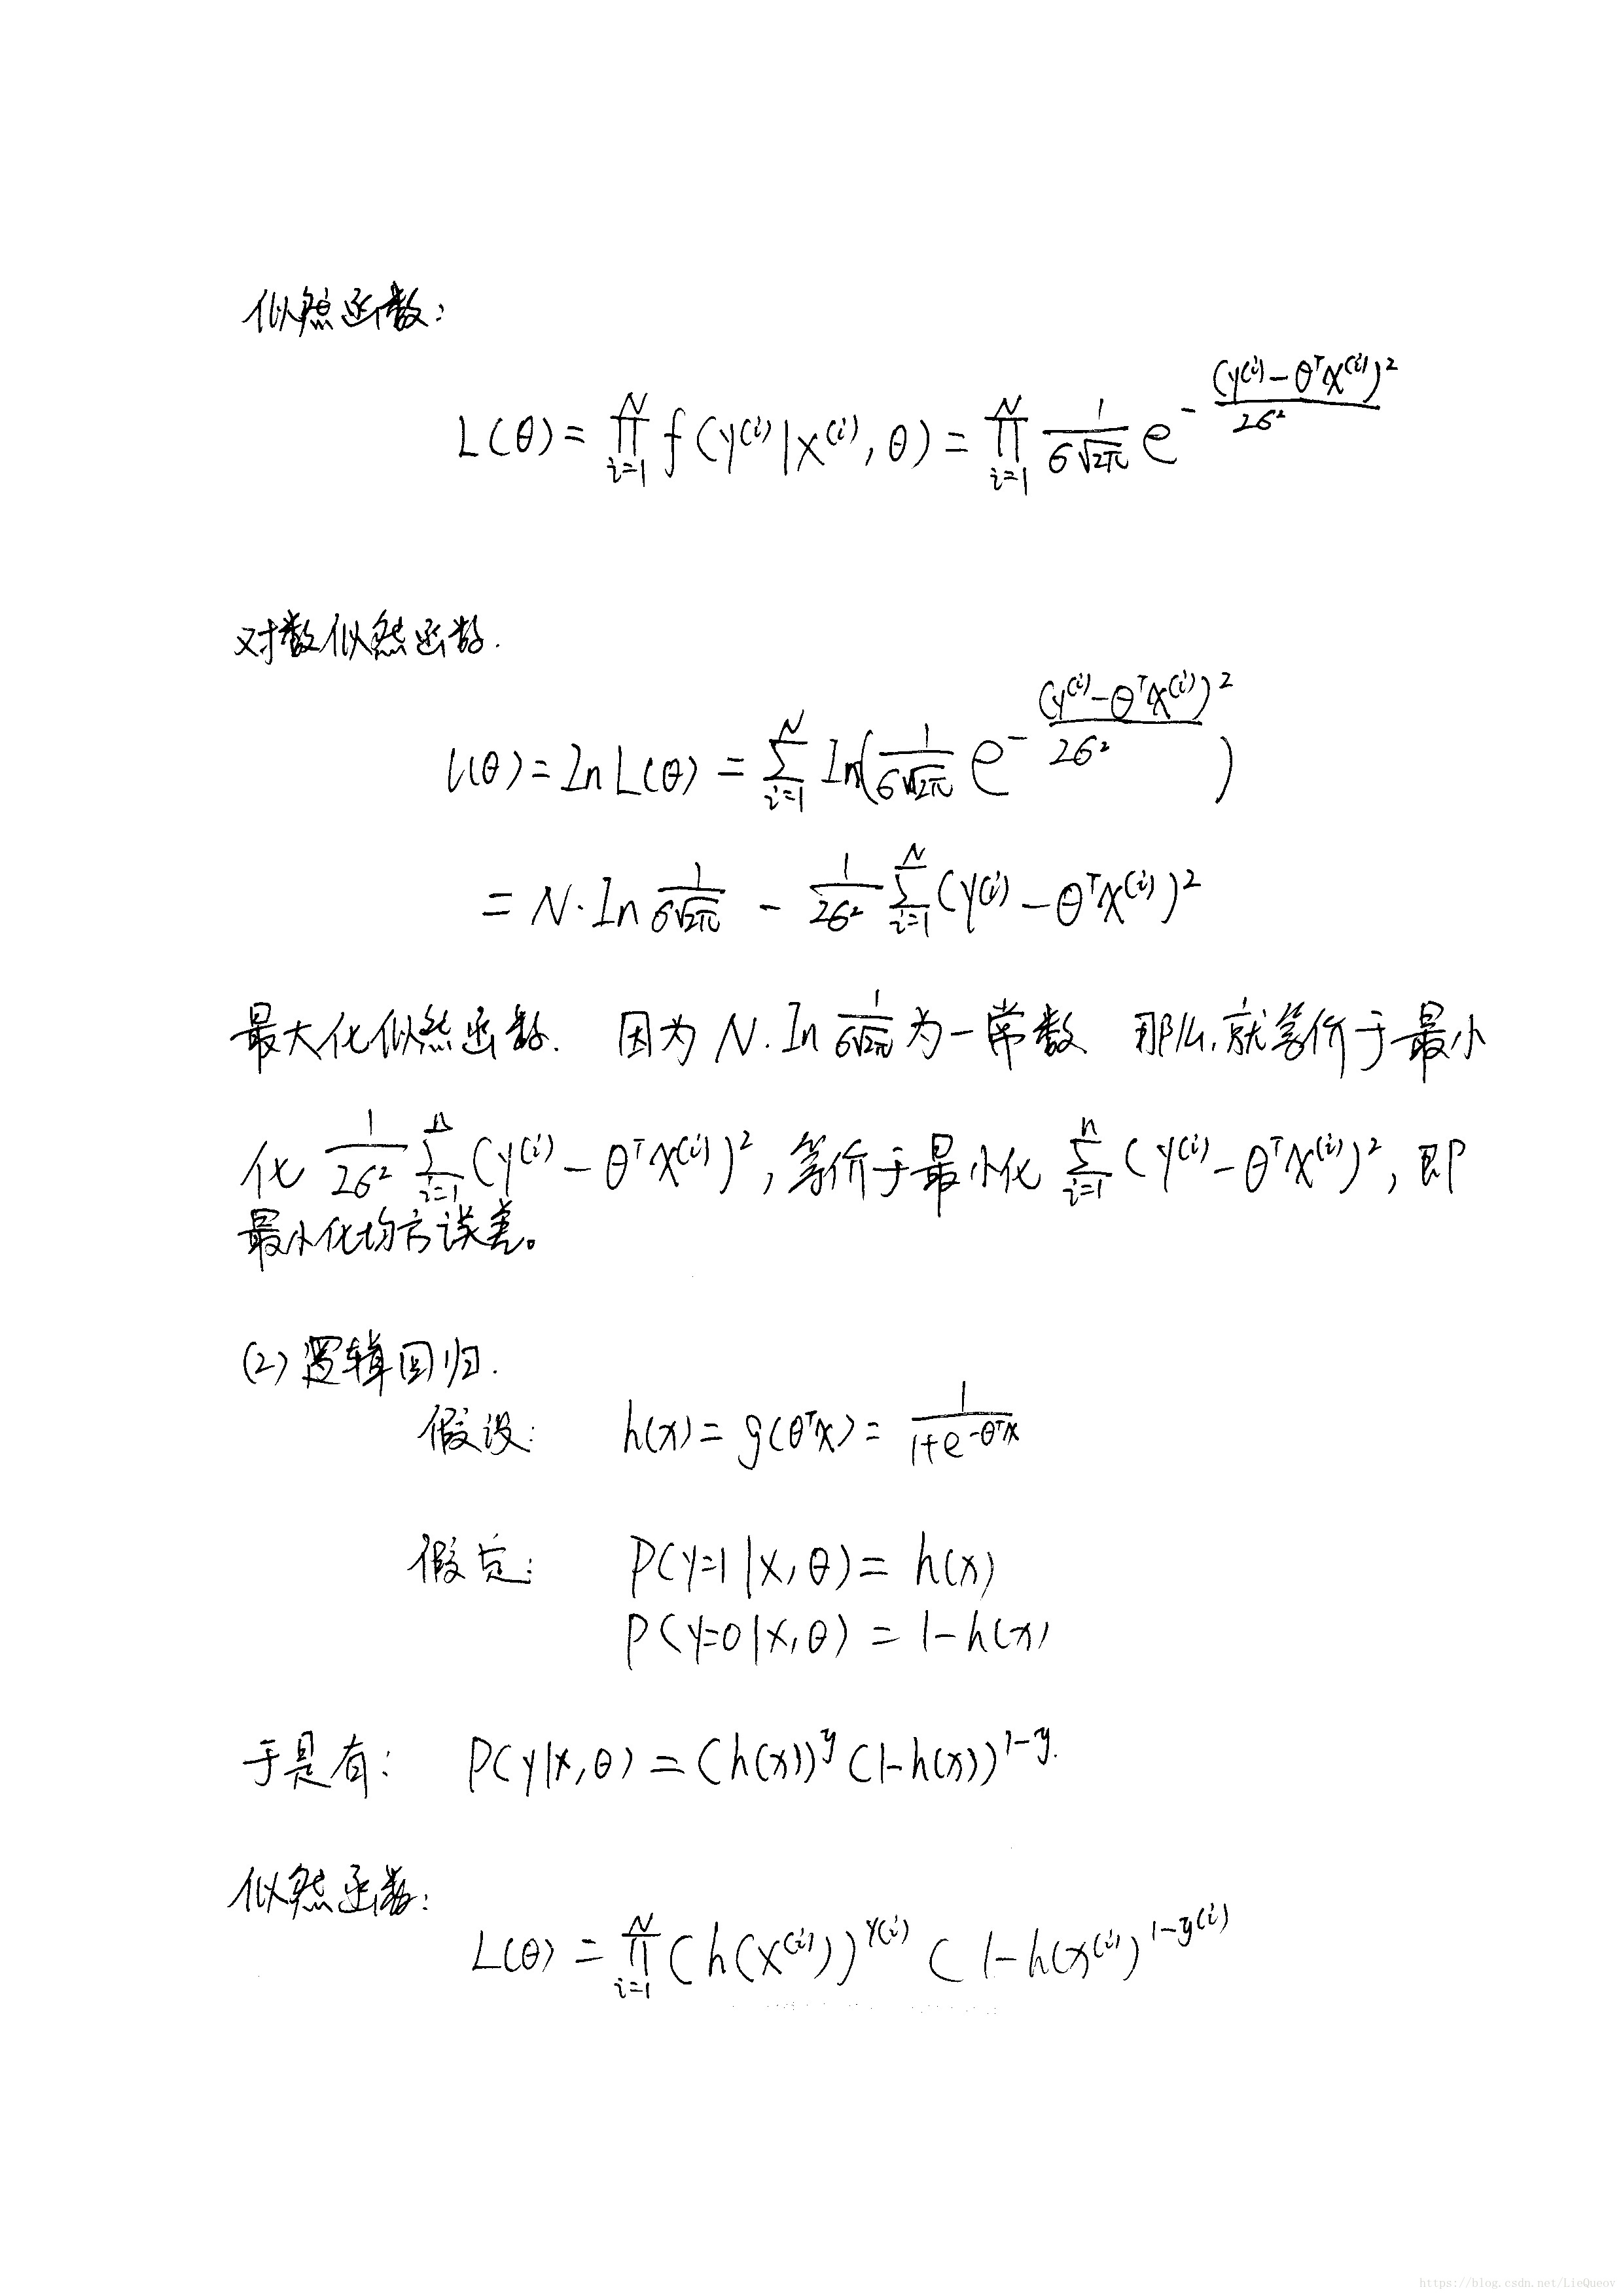 似然函数:
L(θ) = ∏_{i=1}^{N} f(y^{(i)}|x^{(i)}, θ) = ∏_{i=1}^{N} \frac{1}{σ\sqrt{2π}} e^{-\frac{(y^{(i)}-θ^T x^{(i)})^2}{2σ^2}}
对数似然函数.
l(θ) = ln L(θ) = ∑_{i=1}^{N} ln(\frac{1}{σ\sqrt{2π}} e^{-\frac{(y^{(i)}-θ^T x^{(i)})^2}{2σ^2}})
= N·ln \frac{1}{σ\sqrt{2π}} - \frac{1}{2σ^2} ∑_{i=1}^{N} (y^{(i)} - θ^T x^{(i)})^2
最大化似然函数. 因为 N·ln \frac{1}{σ\sqrt{2π}} 为一常数 那么,就等价于最小
化 \frac{1}{2σ^2} ∑_{i=1}^{n} (y^{(i)} - θ^T x^{(i)})^2, 等价于最小化 ∑_{i=1}^{n} (y^{(i)} - θ^T x^{(i)})^2, 即
最小化均方误差。
(2) 逻辑回归.
假设: h(x) = g(θ^T x) = \frac{1}{1+e^{-θ^T x}}
假定: P(y=1|x, θ) = h(x)
P(y=0|x, θ) = 1-h(x)
于是有: P(y|x, θ) = (h(x))^y (1-h(x))^{1-y}.
似然函数:
L(θ) = ∏_{i=1}^{N} (h(x^{(i)}))^{y^{(i)}} (1-h(x^{(i)})^{1-y^{(i)}}
https://blog.csdn.net/LieQueov